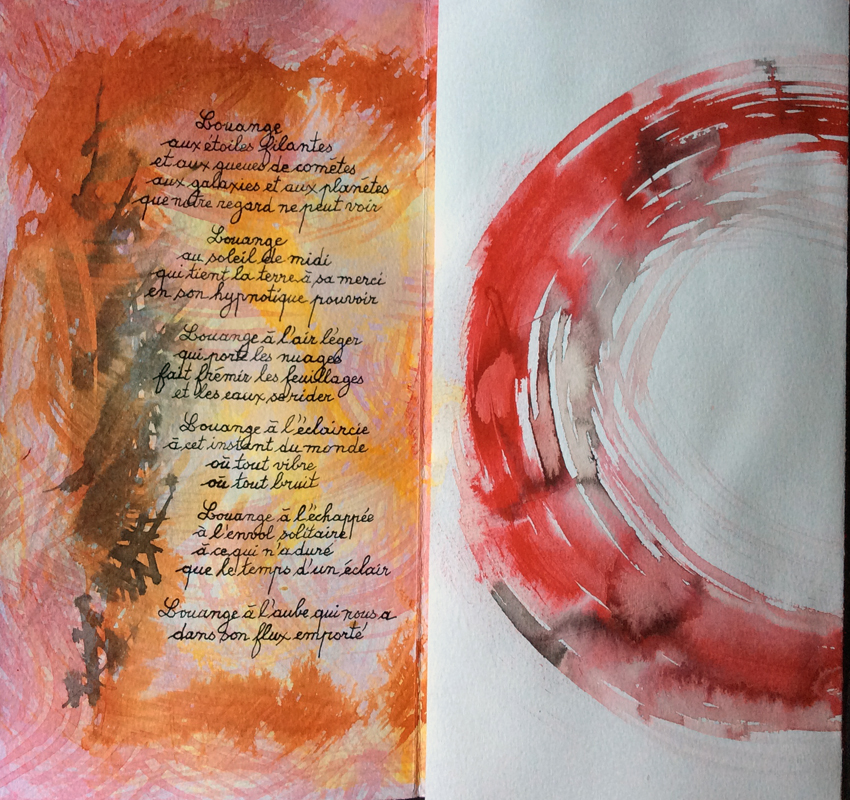 Louange
aux étoiles filantes
et aux queues de comètes
aux galaxies et aux planètes
que notre regard ne peut voir
Louange
au soleil de midi
qui tient la terre à sa merci
en son hypnotique pouvoir
Louange à l'air léger
qui porte les nuages
fait frémir les feuillages
et les eaux se rider
Louange à l'éclaircie
à cet instant du monde
où tout vibre
où tout bruit
Louange à l'échappée
à l'envol solitaire
à ce qui n'a duré
que le temps d'un éclair
Louange à l'aube qui nous a
dans son flux emporté